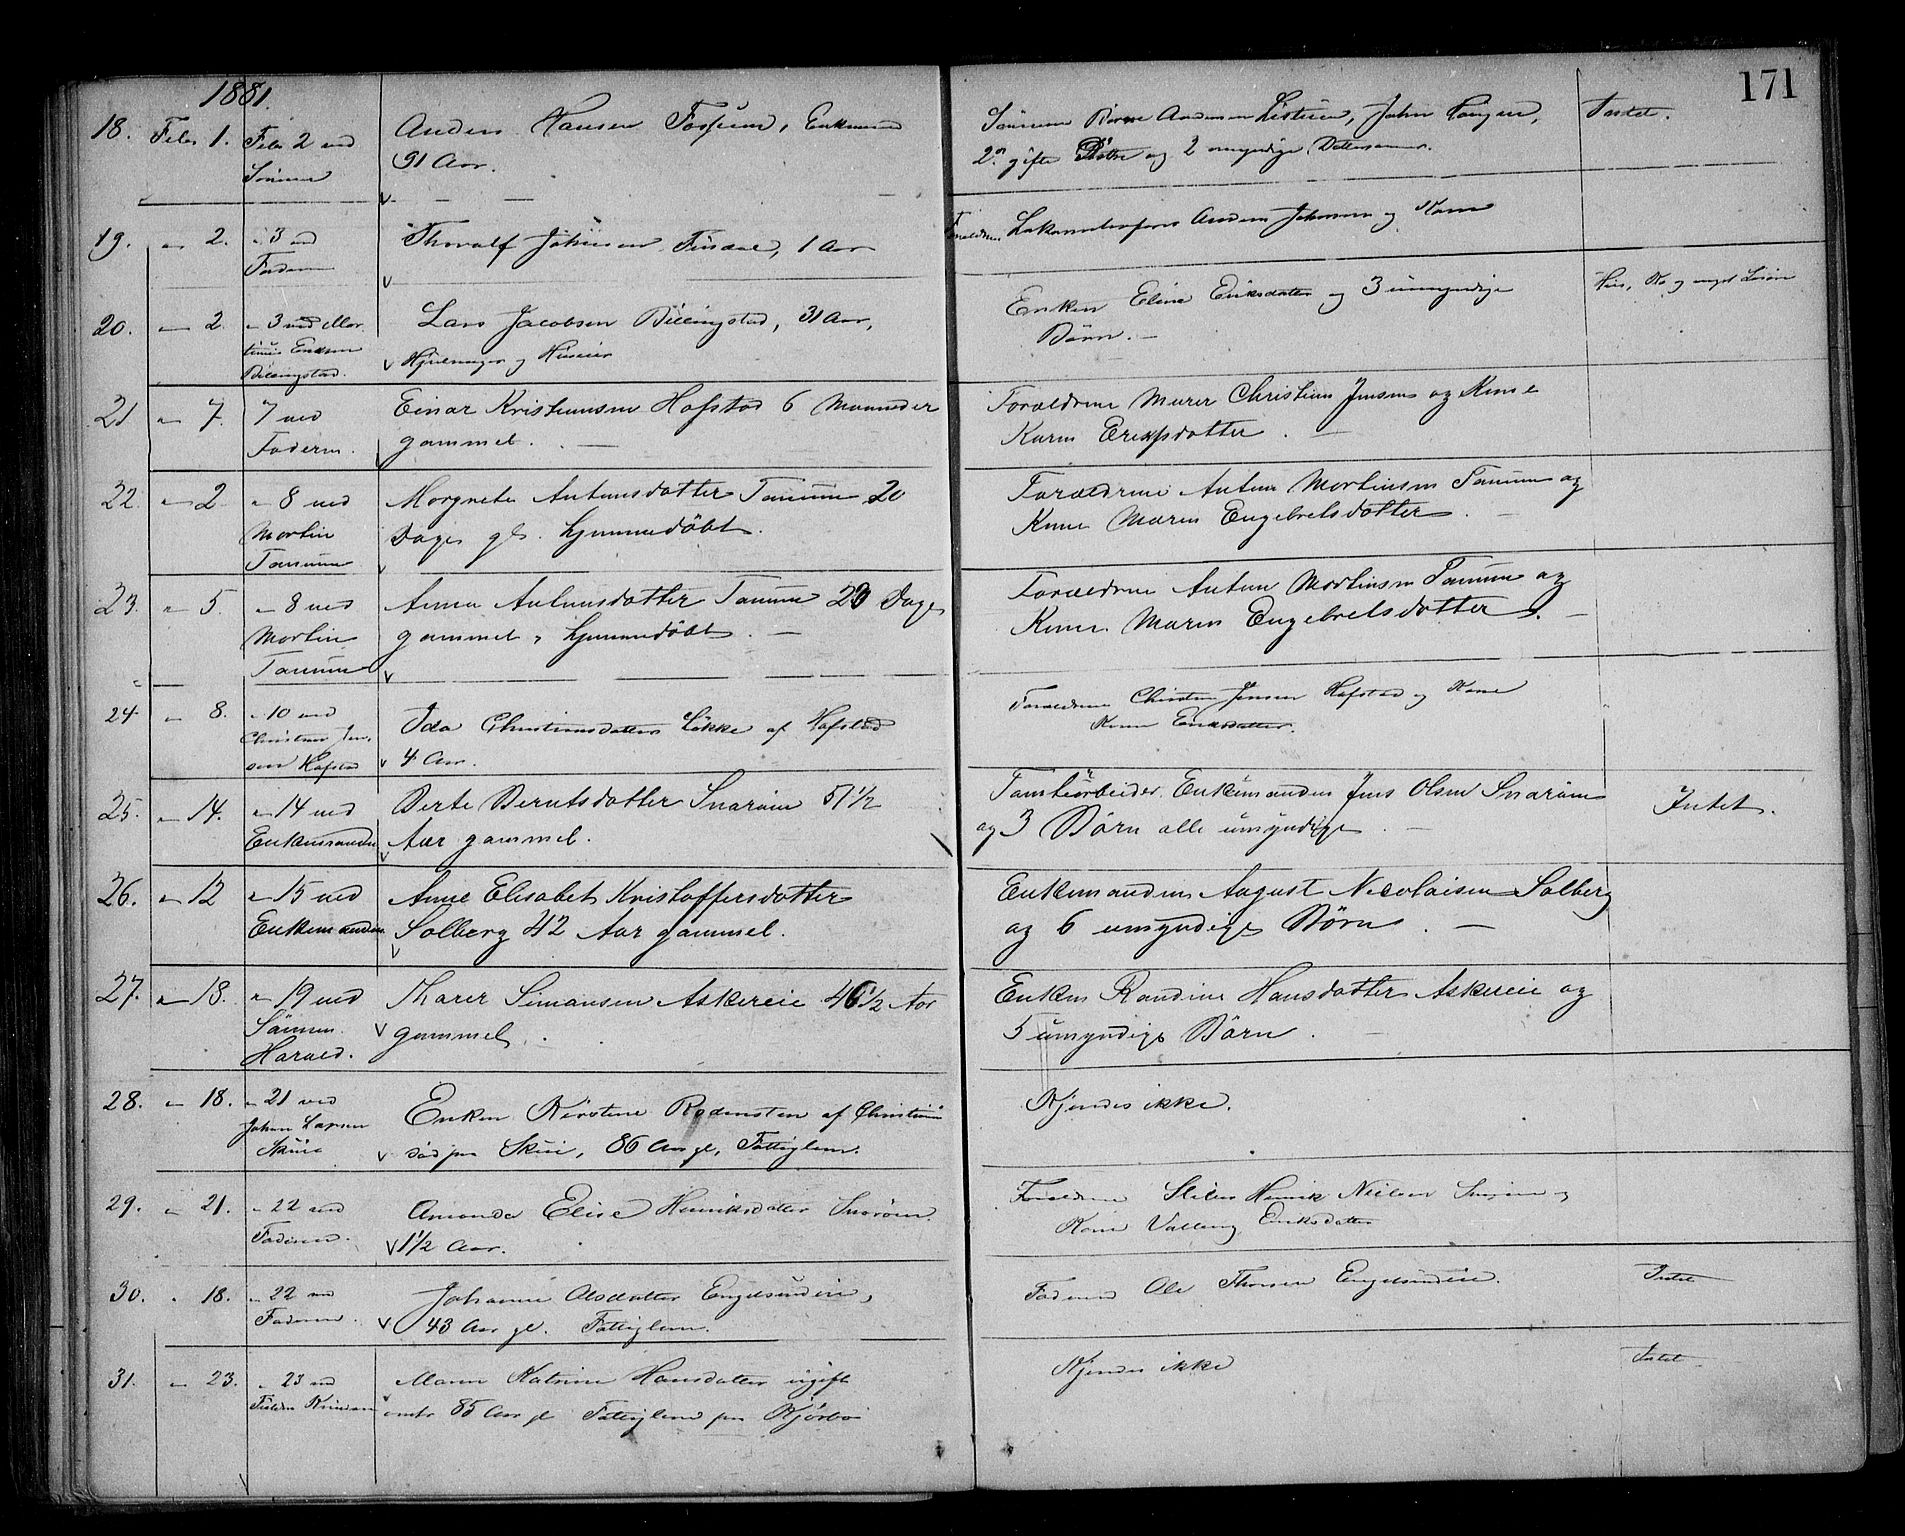 1881.
171
18. Febr 1. Febr 2 ved Sönnen
Anders Hansen Fossum, Enkemand
91 Aar.
2 gifte Døtre og 2 umyndige Dattersønner.
Intet.
19. " 2. " 3 ved Faderen
Thoralf Johnsen 1 Aar
Forældrene Anders Johnsen og Kone
20. " 2. " 3 ved Mar-
tinius Eriksen
Billingstad.
Lars Jacobsen Billingstad, 31 Aar,
Hjulmager og Huseier
Enken Eline Eriksdatter og 3 umyndige
Børn. —
Hus, Ko og noget Løsøre
21 " 7. 7 ved
Faderen.
Einar Kristiansen Hofstad 6 Maaneder
gammel. —
Forældrene Murer Christian Jensen og Kone
Karen Eriksdatter. —
22. " 2 " 8 ved
Martin
Tanum
Margrete Antonsdatter Tanum 20
Dage gl. hjemmedøbt.
Forældrene Anton Martinsen Tanum og
Kone Maren Engebretsdatter. —
23. " 5. " 8 ved
Martin
Tanum
Anna Antonsdatter Tanum 23 Dage
gammel, hjemmedøbt. —
Forældrene Anton Martinsen Tanum og
Kone Maren Engebretsdatter. —
24. " 8. " 10 ved
Christian Jen-
sen Hofstad
Ida Christiansdatter Løkke af Hofstad
4 Aar.
Forældrene Christian Jensen Hofstad og Kone
Karen Eriksdatter.
25. " 14. " 14 ved
Enkemanden
Berte Berntsdatter Snarøen 51 1/2
Aar gammel.
Enkemanden Jens Olsen Snarøen
og 3 Børn alle umyndige. —
Intet.
26. " 12 " 15 ved
Enkemanden
Anne Elisabet Kristoffersdatter
Solberg 42 Aar gammel.
Enkemanden August Nicolaisen Solberg
og 6 umyndige Børn. —
27. " 18. " 19 ved
Sönnen
Harald.
Tharer Simansen Askereie 46 1/2 Aar
gammel.
Enken Randine Hansdatter Askereie og
5 umyndige Børn. —
28. " 18. " 21 ved
Johan Larsen
Skuie
Enken Kirstine Rodensten af Christiania
død paa Skui, 86 Aar gl, Fattiglem.
Kjendes ikke.
29. " 21. " 22 ved
Faderen.
Amanda Elise Henriksdatter Snarøen.
1 1/2 Aar.
Forældrene Henrik Nielsen Snarøen og
Kone Valborg Eriksdatter
30. " 18. " 22 ved
Faderen.
Johanne Olsdatter
43 Aar gl. Fattiglem.
Faderen Ole Thorsen
Intet
31. " 23. " 23 ved
Maren Katrine Hansdatter ugift
omtr 85 Aar gl Fattiglem paa Kjørbo
Kjendes ikke
Intet.